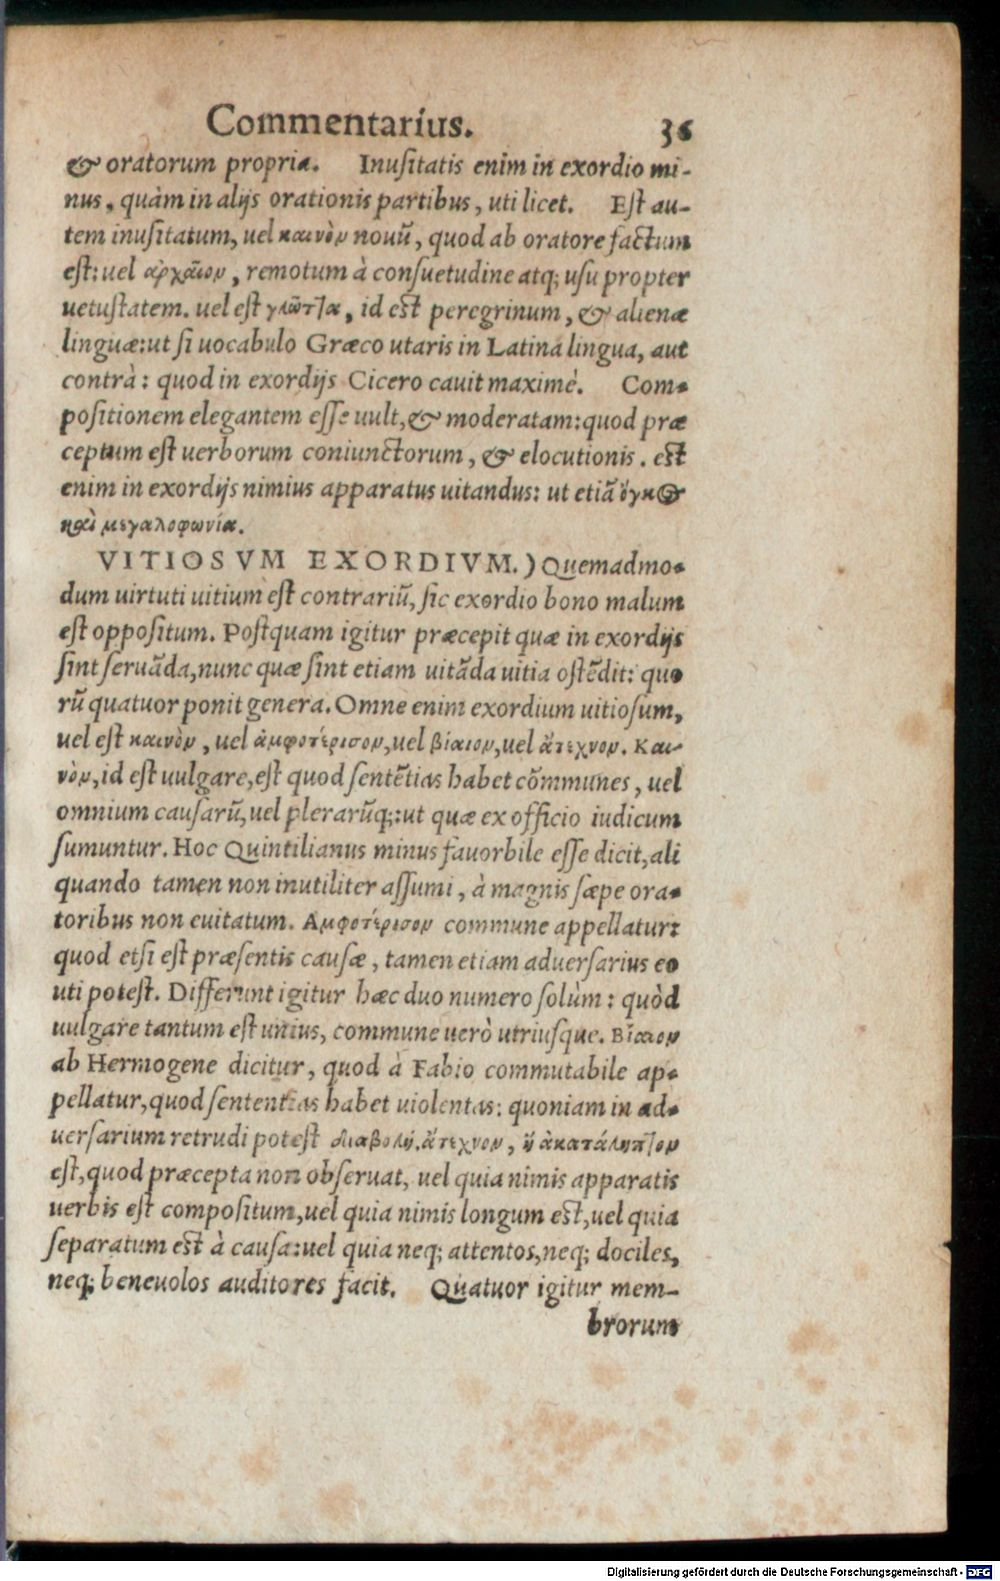 Commentarius. 36
& oratorum propria. Inusitatis enim in exordio mi-
nus, quàm in alijs orationis partibus, uti licet. Est au-
tem inusitatum, uel καινὸν nouũ, quod ab oratore factum
est: uel ἀρχαῖον, remotum à consuetudine atq; usu propter
uetustatem. uel est γλῶττα, id est peregrinum, & alienæ
linguæ: ut si uocabulo Græco utaris in Latina lingua, aut
contrà: quod in exordijs Cicero cauit maximè. Com-
positionem elegantem esse uult, & moderatam: quod præ
ceptum est uerborum coniunctorum, & elocutionis. est
enim in exordijs nimius apparatus uitandus: ut etiã ὄγκος
καὶ μεγαλοφωνία.
VITIOSVM EXORDIVM.) Quemadmo-
dum uirtuti uitium est contrariũ, sic exordio bono malum
est oppositum. Postquam igitur præcepit quæ in exordijs
sint seruãda, nunc quæ sint etiam uitãda uitia ostẽdit: quo
rũ quatuor ponit genera. Omne enim exordium uitiosum,
uel est καινὸν, uel ἀμφοτέρισον, uel βίαιον, uel ἄτεχνον. Και-
νὸν, id est uulgare, est quod sentẽtias habet cõmmunes, uel
omnium causarũ, uel plerarũq;: ut quæ ex officio iudicum
sumuntur. Hoc Quintilianus minus fauorbile esse dicit, ali
quando tamen non inutiliter assumi, à magnis sæpe ora-
toribus non euitatum. Αμφοτέρισον commune appellatur:
quod etsi est præsentis causæ, tamen etiam aduersarius eo
uti potest. Differunt igitur hæc duo numero solùm: quòd
uulgare tantum est unius, commune uerò utriusque. Βίαιον
ab Hermogene dicitur, quod à Fabio commutabile ap-
pellatur, quod sententias habet uiolentas: quoniam in ad-
uersarium retrudi potest διαβολή. ἄτεχνον, ἢ ἀκατάληπτον
est, quod præcepta non obseruat, uel quia nimis apparatis
uerbis est compositum, uel quia nimis longum est, uel quia
separatum est à causa: uel quia neq; attentos, neq; dociles,
neq; beneuolos auditores facit. Quatuor igitur mem-
brorum
Digitalisierung gefördert durch die Deutsche Forschungsgemeinschaft - DFG